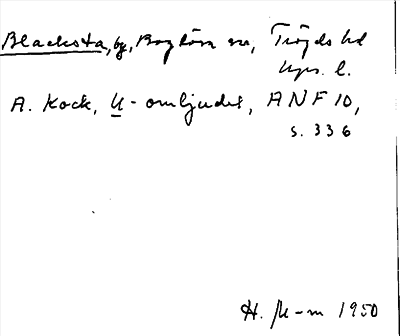 Blacksta, by, Boglösa sn, Trögds hd
Upps. l.
A. Kock, U-omljudet, ANF 10,
s. 336
H. St-m 1950